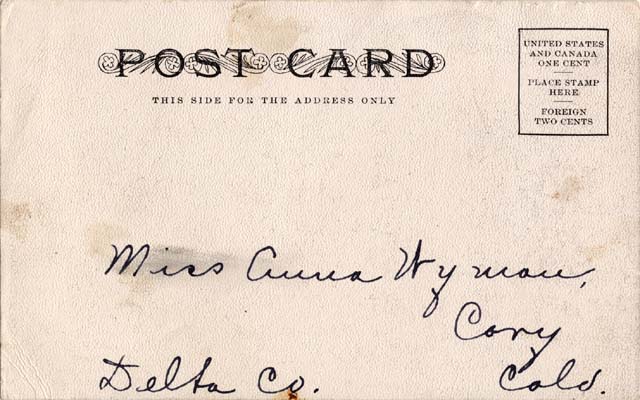 POST CARD
THIS SIDE FOR THE ADDRESS ONLY
UNITED STATES
AND CANADA
ONE CENT
PLACE STAMP
HERE
FOREIGN
TWO CENTS
Miss Anna Wyman,
Cory
Delta Co. Colo.